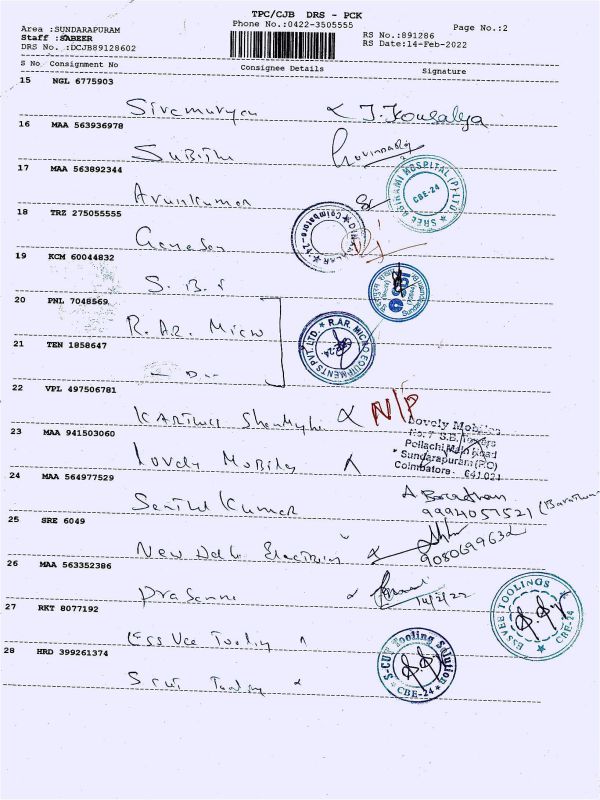 TPC/CJB DRS - PCK
Phone No.:0422-3505555
Page No.:2
Area :SUNDARAPURAM
Staff :SABEER
DRS No. :DCJB89128602
RS No.:891286
RS Date:14-Feb-2022
S No Consignment No Consignee Details Signature
15 NGL 6775903
J. Kousalya
16 MAA 563936978
Subithi
17 MAA 563892344
Arunkumar
SREE ABIRAMI HOSPITAL (P) LTD
CBE-24
18 TRZ 275055555
Ganesan
Coimbatore-24
19 KCM 60044832
S. B. I
20 PNL 7048569
R. AR. Micro
R.AR. MICRO EQUIPMENTS PVT. LTD.
CBE-24.
21 TEN 1858647
— Do —
22 VPL 497506781
N/P
23 MAA 941503060
Lovely Mobiles
Lovely Mobiles
No. 7 S.B. Towers
Pollachi Main Road
Sundarapuram (P.O)
Coimbatore - 641 024
24 MAA 564977529
Senthil Kumar
9994057521
25 SRE 6049
New Delti Electricis
26 MAA 563352386
Prasanna
14/2/22
27 RKT 8077192
Ess Vee Tooling
ESSVEE TOOLINGS
CBE-24
28 HRD 399261374
S-CUP Tooling Solution
CBE-24